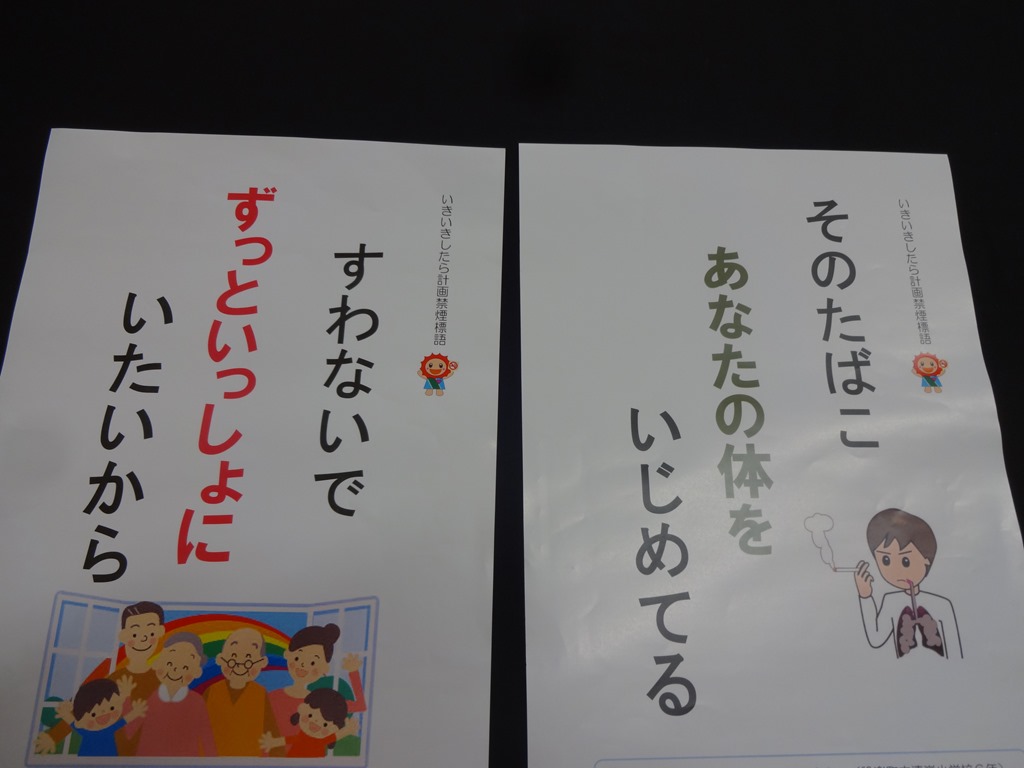 いきいきしたら計画禁煙標語
すわないで
ずっといっしょに
いたいから
いきいきしたら計画禁煙標語
そのたばこ
あなたの体を
いじめてる